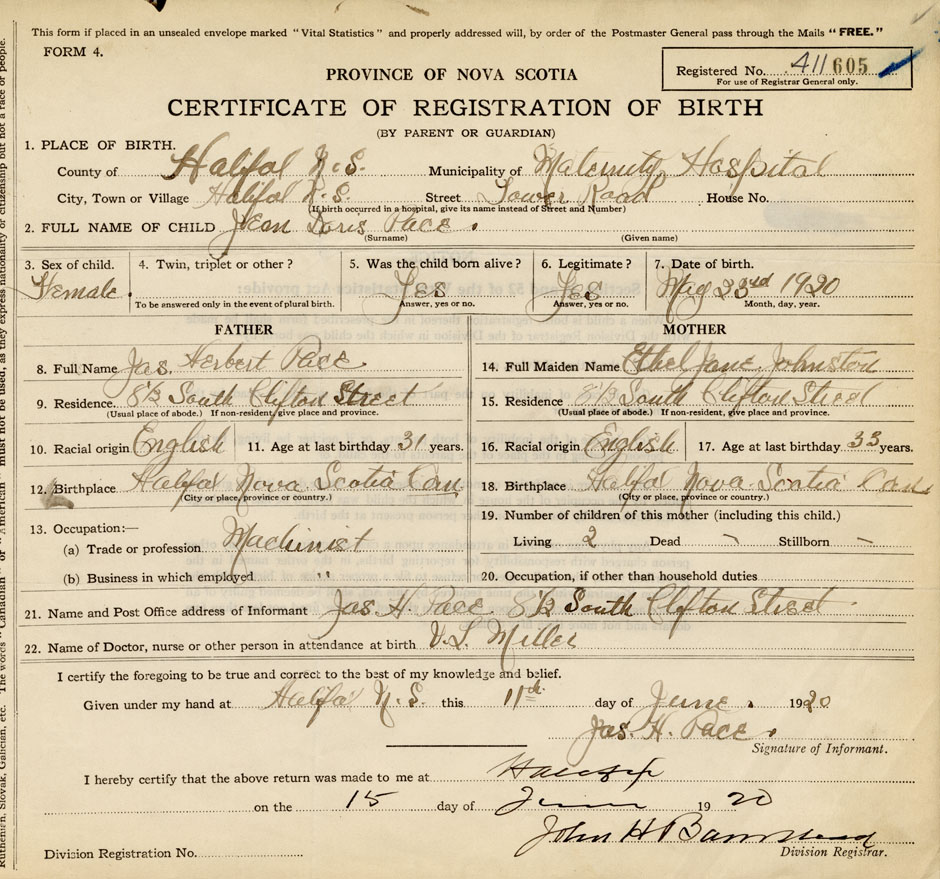 This form if placed in an unsealed envelope marked "Vital Statistics" and properly addressed will, by order of the Postmaster General pass through the Mails "FREE."
FORM 4.
Registered No. 411605
For use of Registrar General only.
PROVINCE OF NOVA SCOTIA
CERTIFICATE OF REGISTRATION OF BIRTH
(BY PARENT OR GUARDIAN)
1. PLACE OF BIRTH.
County of Halifax N.S. Municipality of Maternity Hospital
City, Town or Village Halifax N.S. Street Tower Road House No.
(If birth occurred in a hospital, give its name instead of Street and Number)
2. FULL NAME OF CHILD Jean Doris Pace.
(Surname) (Given name)
3. Sex of child. 4. Twin, triplet or other? 5. Was the child born alive? 6. Legitimate? 7. Date of birth.
Female. Yes Yes May 23rd 1920
To be answered only in the event of plural birth. Answer, yes or no. Answer, yes or no. Month, day, year.
FATHER MOTHER
8. Full Name Jas. Herbert Pace. 14. Full Maiden Name Ethel Jane Johnston
9. Residence. 8½ South Clifton Street 15. Residence. 8½ South Clifton Street
(Usual place of abode.) If non-resident, give place and province. (Usual place of abode.) If non-resident, give place and province.
10. Racial origin English 11. Age at last birthday 31 years. 16. Racial origin English 17. Age at last birthday 33 years.
12. Birthplace Halifax Nova Scotia Can 18. Birthplace Halifax Nova Scotia Can
(City or place, province or country.) (City or place, province or country.)
13. Occupation:— 19. Number of children of this mother (including this child.)
(a) Trade or profession Machinist Living 2 Dead – Stillborn –
(b) Business in which employed " 20. Occupation, if other than household duties
21. Name and Post Office address of Informant Jas. H. Pace 8½ South Clifton Street
22. Name of Doctor, nurse or other person in attendance at birth V.L. Miller
I certify the foregoing to be true and correct to the best of my knowledge and belief.
Given under my hand at Halifax N.S. this 11th day of June 1920
Jas. H. Pace.
Signature of Informant.
I hereby certify that the above return was made to me at Halifax
on the 15 day of June 1920
John H
Division Registration No. Division Registrar.
Ruthenian, Slovak, Galician, etc. The words "Canadian" or "American" must not be used, as they express nationality or citizenship but not a race or people.